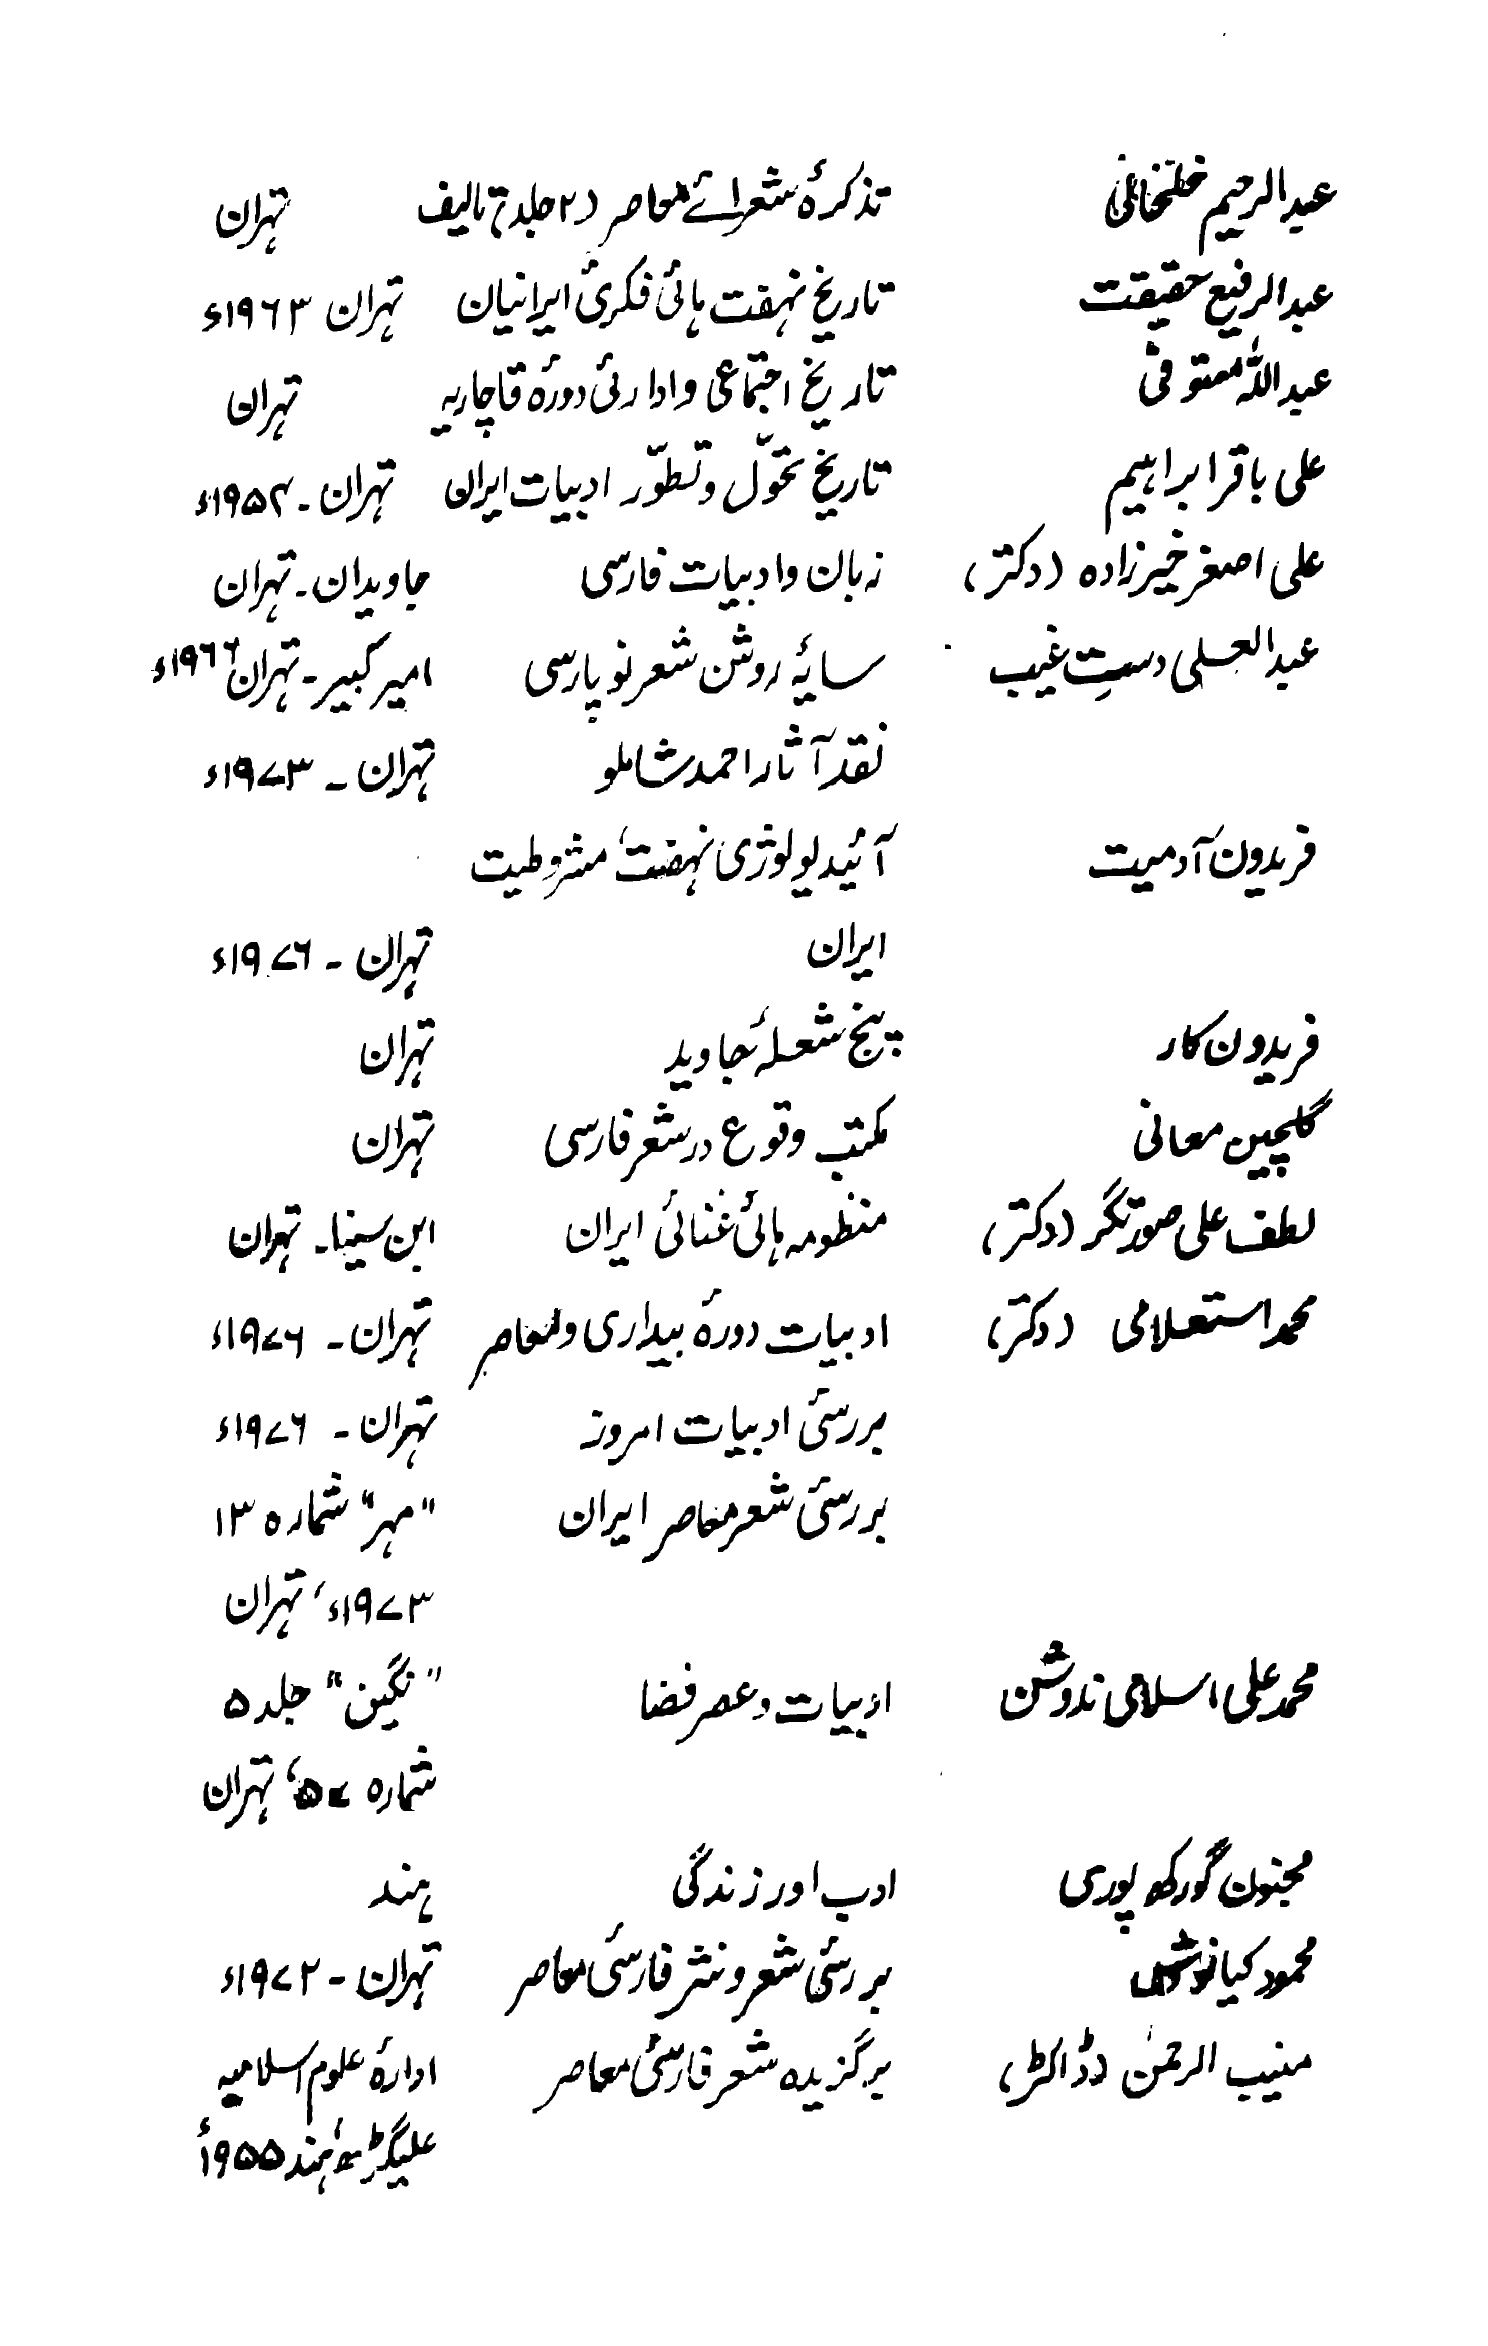 عبدالرحیم خلخالی تذکرۂ شعرائے معاصر (۲ جلد) تالیف تہران
عبدالرفیع حقیقت تاریخ نہضت ہائی فکریٔ ایرانیان تہران ۱۹۶۳ء
عبداللہ مستوفی تاریخ اجتماعی و اداریٔ دورۂ قاچاریہ تہران
علی باقر ابراہیم تاریخ تحوّل و تطوّر ادبیات ایران تہران۔ ۱۹۵۲ء
علی اصغر خیرزادہ (دکتر) زبان و ادبیات فارسی جاویدان۔ تہران
عبدالعلی دستِ غیب سایۂ روشن شعر نو پارسی امیر کبیر۔ تہران ۱۹۶۶ء
نقد آثار احمد شاملو تہران ۔ ۱۹۷۳ء
فریدون آدمیت آئیدیولوژی نہضت، مشروطیت
ایران تہران ۔ ۱۹۷۶ء
فریدون کار پنج شعلۂ جاوید تہران
گلچین معانی مکتب وقوع در شعر فارسی تہران
لطف علی صورتگر (دکتر) منظومہ ہائی غنائی ایران ابن سینا۔ تہران
محمد استعلامی (دکتر) ادبیات دورۂ بیداری و معاصر تہران۔ ۱۹۷۶ء
بررسیٔ ادبیات امروز تہران۔ ۱۹۷۶ء
بررسیٔ شعر معاصر ایران "مہر" شمارہ ۱۳
۱۹۷۳ء، تہران
محمد علی اسلامی ندوشن ادبیات و عصر فضا "نگین" جلد ۵
شمارہ ۵۷، تہران
مجنون گورکھ پوری ادب اور زندگی ہند
محمود کیانوش بررسیٔ شعر و نثر فارسیٔ معاصر تہران۔ ۱۹۷۲ء
منیب الرحمٰن (ڈاکٹر) برگزیدہ شعر فارسیٔ معاصر ادارۂ علوم اسلامیہ
علیگڑھ، ہند ۱۹۵۵ء